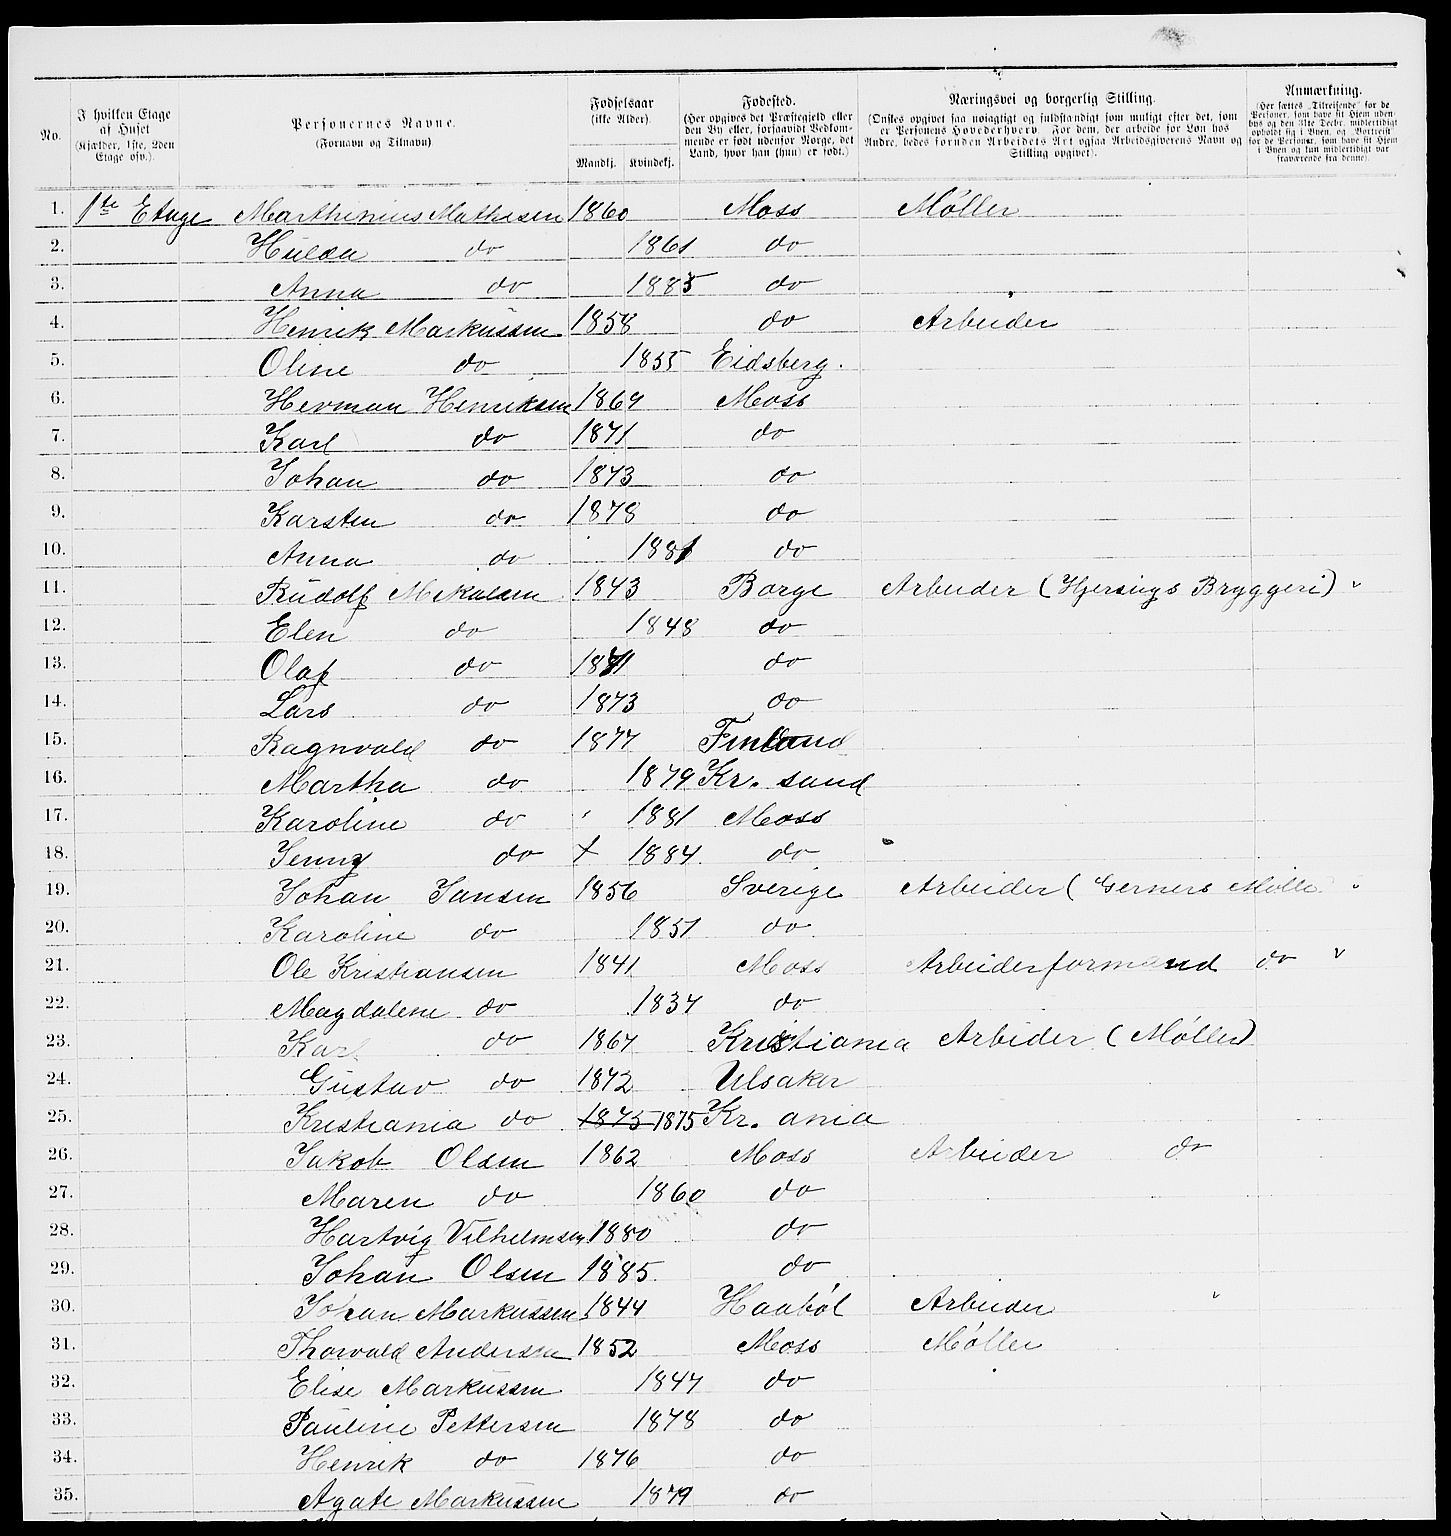 No. | I hvilken Etage af Huset (Kjælder, 1ste, 2den Etage osv.). | Personernes Navne. (Fornavn og Tilnavn) | Fødselsaar (ikke Alder). Mandkj. Kvindekj. | Fødested. (Her opgives det Præstegjeld eller den By eller, forsaavidt Vedkommende er født udenfor Norge, det Land, hvor han (hun) er født.) | Næringsvei og borgerlig Stilling. (Ønskes opgivet saa nøiagtigt og fuldstændigt som muligt efter det, som er Personens Hovederhverv. For dem, der arbeide for Løn hos Andre, bedes foruden Arbeidets Art ogsaa Arbeidsgiverens Navn og Stilling opgivet). | Anmærkning. (Her sættes „Tilreisende" for de Personer, som have sit Hjem udenbys og den 31te Decbr. midlertidigt opholdt sig i Byen, og „Bortreist" for de Personer, som have sit Hjem i Byen og kun midlertidigt var fraværende fra denne).
1. 1ste Etage Marthinius Mathisen 1860 Moss Møller
2. Hulda do 1861 do
3. Anna do 1885 do
4. Henrik Markussen 1858 do Arbeider
5. Oline do 1855 Eidsberg.
6. Herman Henriksen 1869 Moss
7. Karl do 1871 do
8. Johan do 1873 do
9. Karsten do 1878 do
10. Anna do 1881 do
11. Rudolf Mikalsen 1843 Borge Arbeider (Hjersings Bryggeri)
12. Elen do 1848 do
13. Olaf do 1871 do
14. Lars do 1873 do
15. Ragnvald do 1877 Finland
16. Martha do 1879 Kr. sand
17. Karoline do 1881 Moss
18. Jenny do + 1884 do
19. Johan Jansen 1856 Sverige Arbeider (Gerners Mølle
20. Karoline do 1851 do
21. Ole Kristiansen 1841 Moss Arbeiderformand do
22. Magdalene do 1837 do
23. Karl do 1867 Kristiania Arbeider (Møller)
24. Gustav do 1872 Ulsaker
25. Kristiania do 1875 1875 Kr. ania
26. Jakob Olsen 1862 Moss Arbeider do
27. Maren do 1860 do
28. Hartvig Vilhelmsen 1880 do
29. Johan Olsen 1885 do
30. Johan Markussen 1844 Haabøl Arbeider
31. Thorvald Andersen 1852 Moss Møller
32. Elise Markussen 1847 do
33. Pauline Pettersen 1878 do
34. Henrik do 1876 do
35. Agate Markussen 1879 do